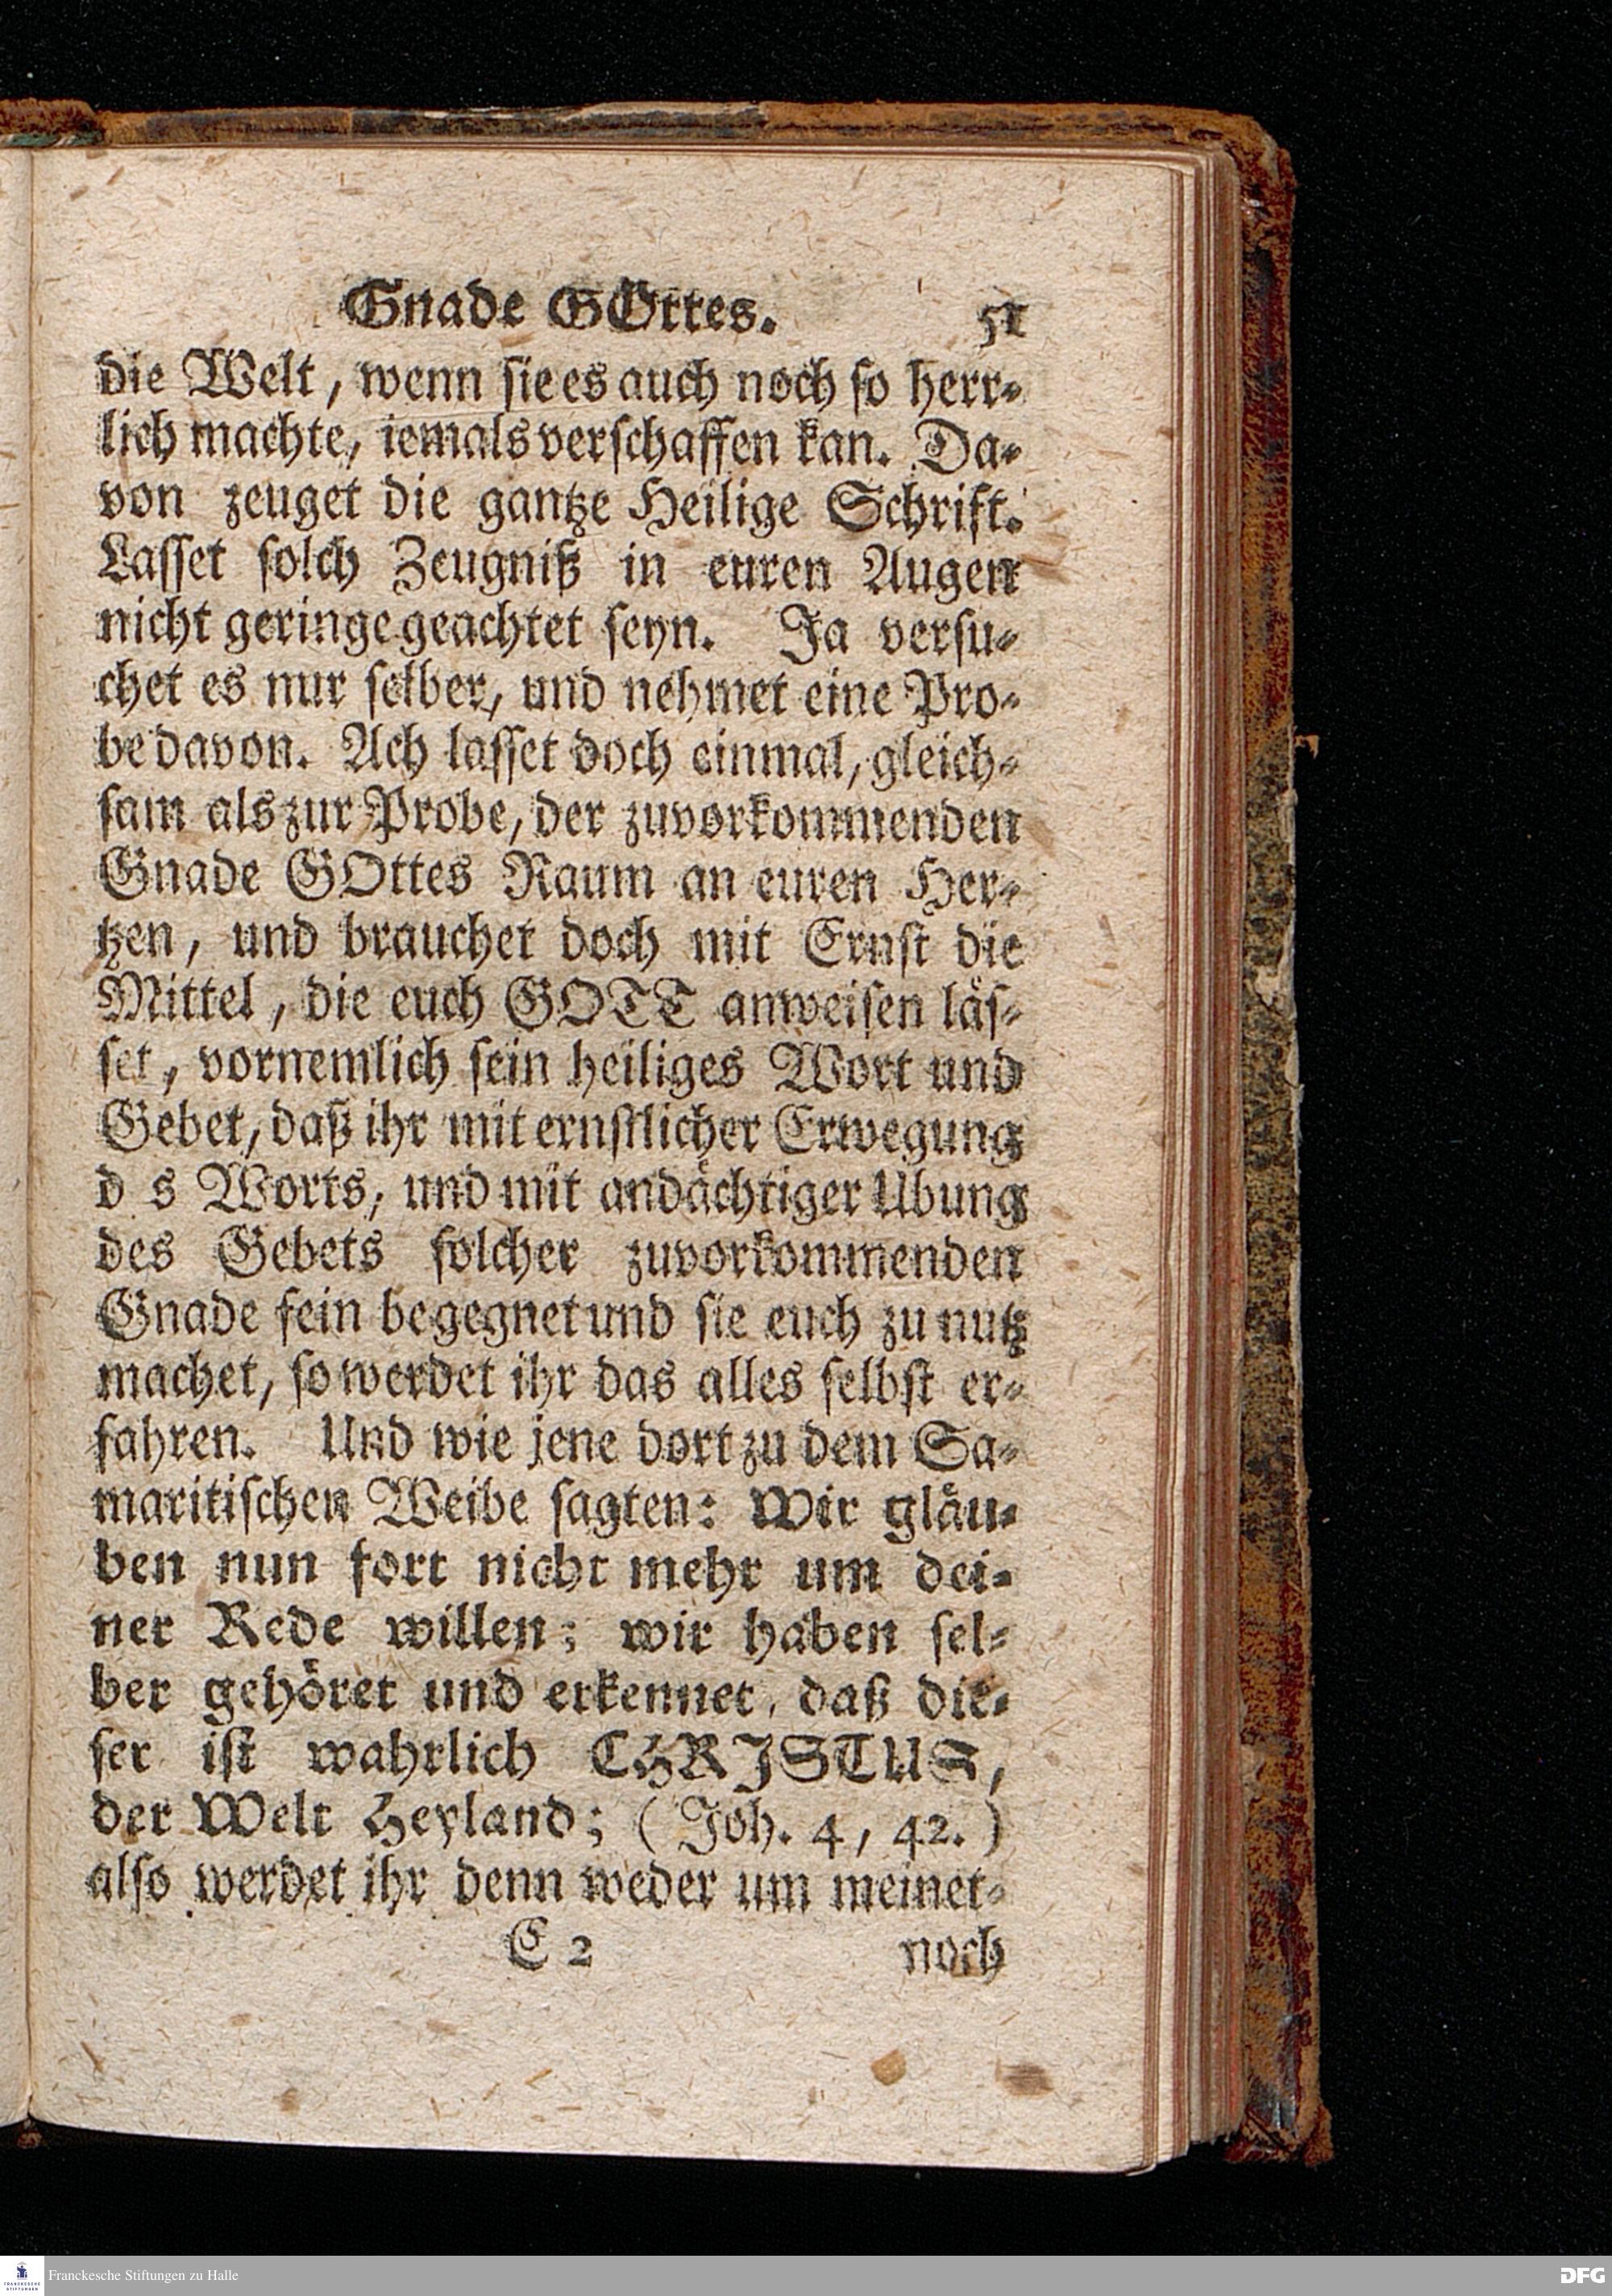 Gnade GOttes. 51
die Welt, wenn sie es auch noch so herr-
lich machte, iemals verschaffen kan. Da-
von zeuget die gantze Heilige Schrift.
Lasset solch Zeugniß in euren Augen
nicht geringe geachtet seyn. Ja versu-
chet es nur selber, und nehmet eine Pro-
be davon. Ach lasset doch einmal, gleich-
sam als zur Probe, der zuvorkommenden
Gnade GOttes Raum an euren Her-
tzen, und brauchet doch mit Ernst die
Mittel, die euch GOTT anweisen läs-
set, vornemlich sein heiliges Wort und
Gebet, daß ihr mit ernstlicher Erwegung
d s Worts, und mit andächtiger Ubung
des Gebets solcher zuvorkommenden
Gnade fein begegnet und sie euch zu nutz
machet, so werdet ihr das alles selbst er-
fahren. Und wie jene dort zu dem Sa-
maritischen Weibe sagten: Wir gläu-
ben nun fort nicht mehr um dei-
ner Rede willen; wir haben sel-
ber gehöret und erkennet, daß die-
ser ist wahrlich CHRISTUS,
der Welt Heyland; (Joh. 4, 42.)
also werdet ihr denn weder um meinet-
C 2 noch
Franckesche Stiftungen zu Halle
FRANCKESCHE STIFTUNGEN
DFG